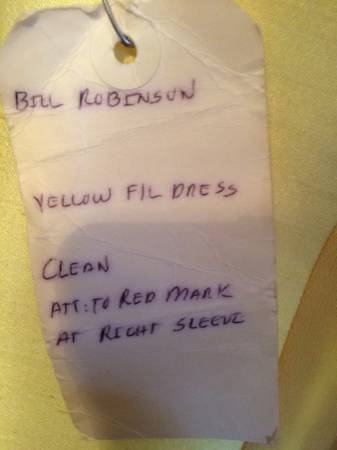 BILL ROBINSON
YELLOW F/L DRESS
CLEAN
ATT: TO RED MARK
AT RIGHT SLEEVE